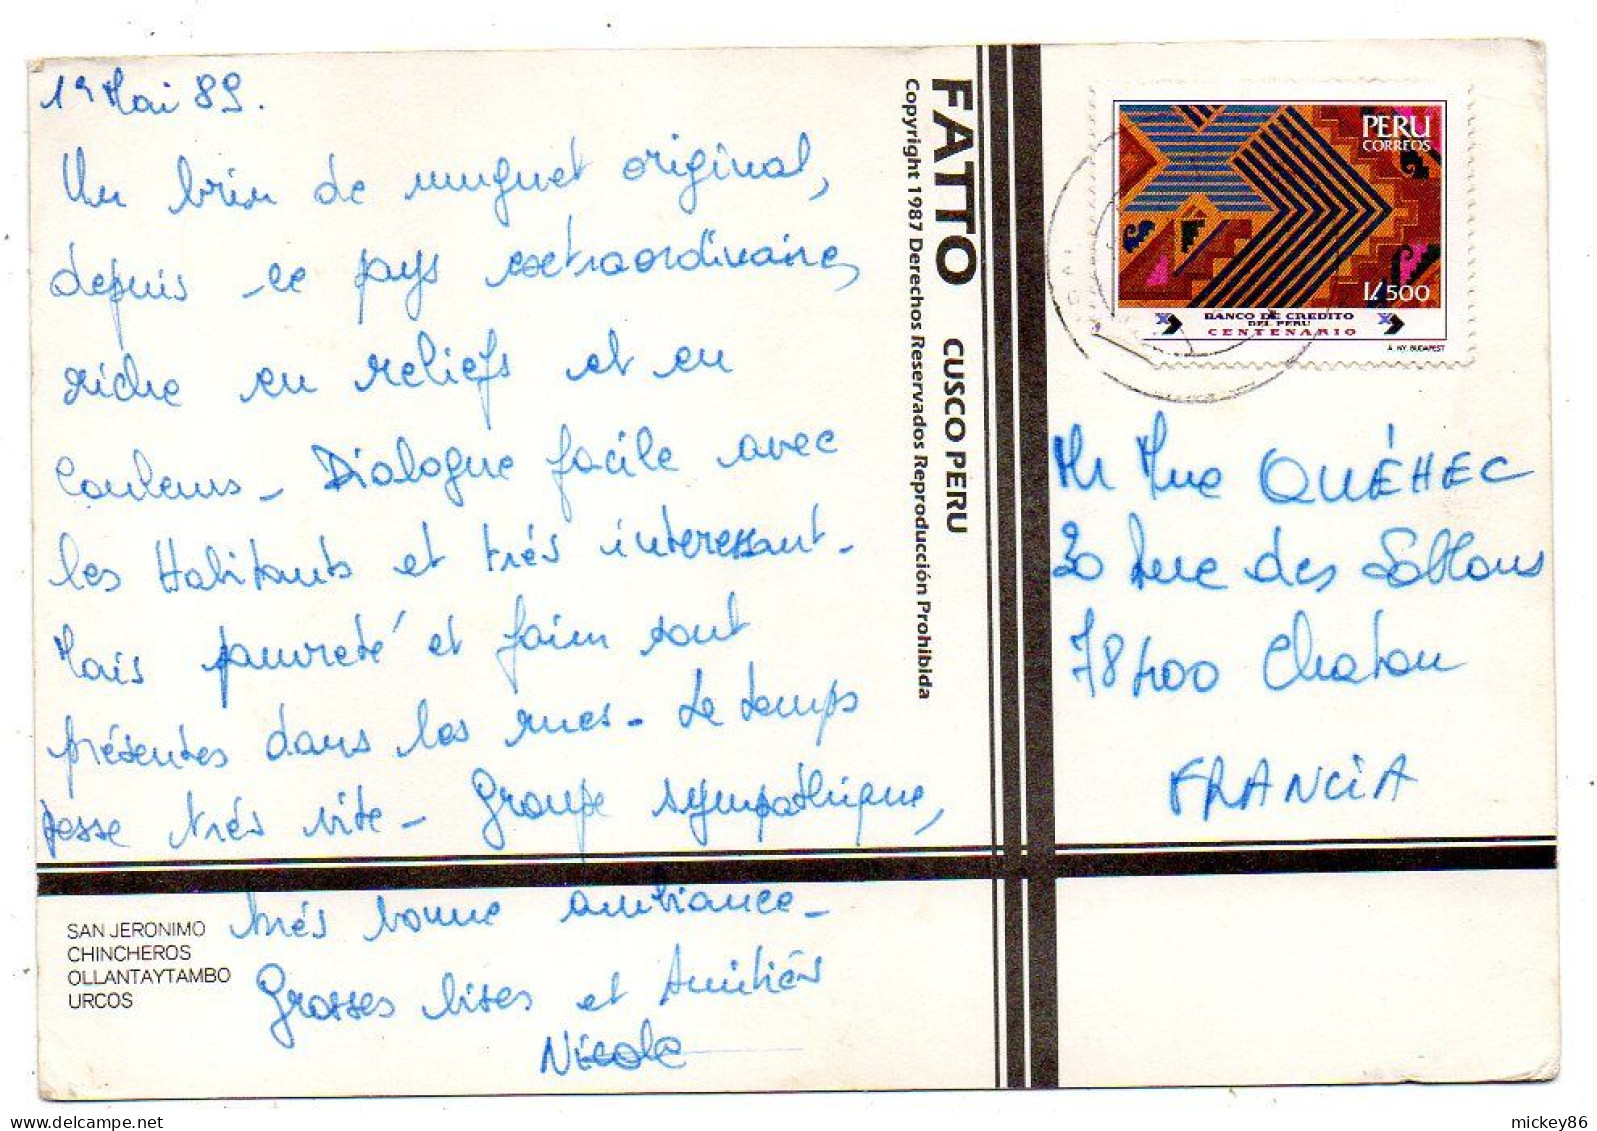 1er Mai 89.
Un brin de muguet original,
depuis ce pays extraordinaire,
riche en reliefs et en
couleurs - Dialogue facile avec
les Habitants et très intéressant -
Mais pauvreté et faim sont
présentes dans les rues - Le temps
passe très vite - Groupe sympathique,
très bonne ambiance -
Grosses bises et Amitiés
Nicole
SAN JERONIMO
CHINCHEROS
OLLANTAYTAMBO
URCOS
FATTO CUSCO PERU
Copyright 1987 Derechos Reservados Reproducción Prohibida
PERU
CORREOS
I/. 500
BANCO DE CREDITO
DEL PERU
CENTENARIO
A. NY. BUDAPEST
Mr Mme QUÉHEC
20 Rue des Sablons
78400 Chatou
FRANCIA
mickey86